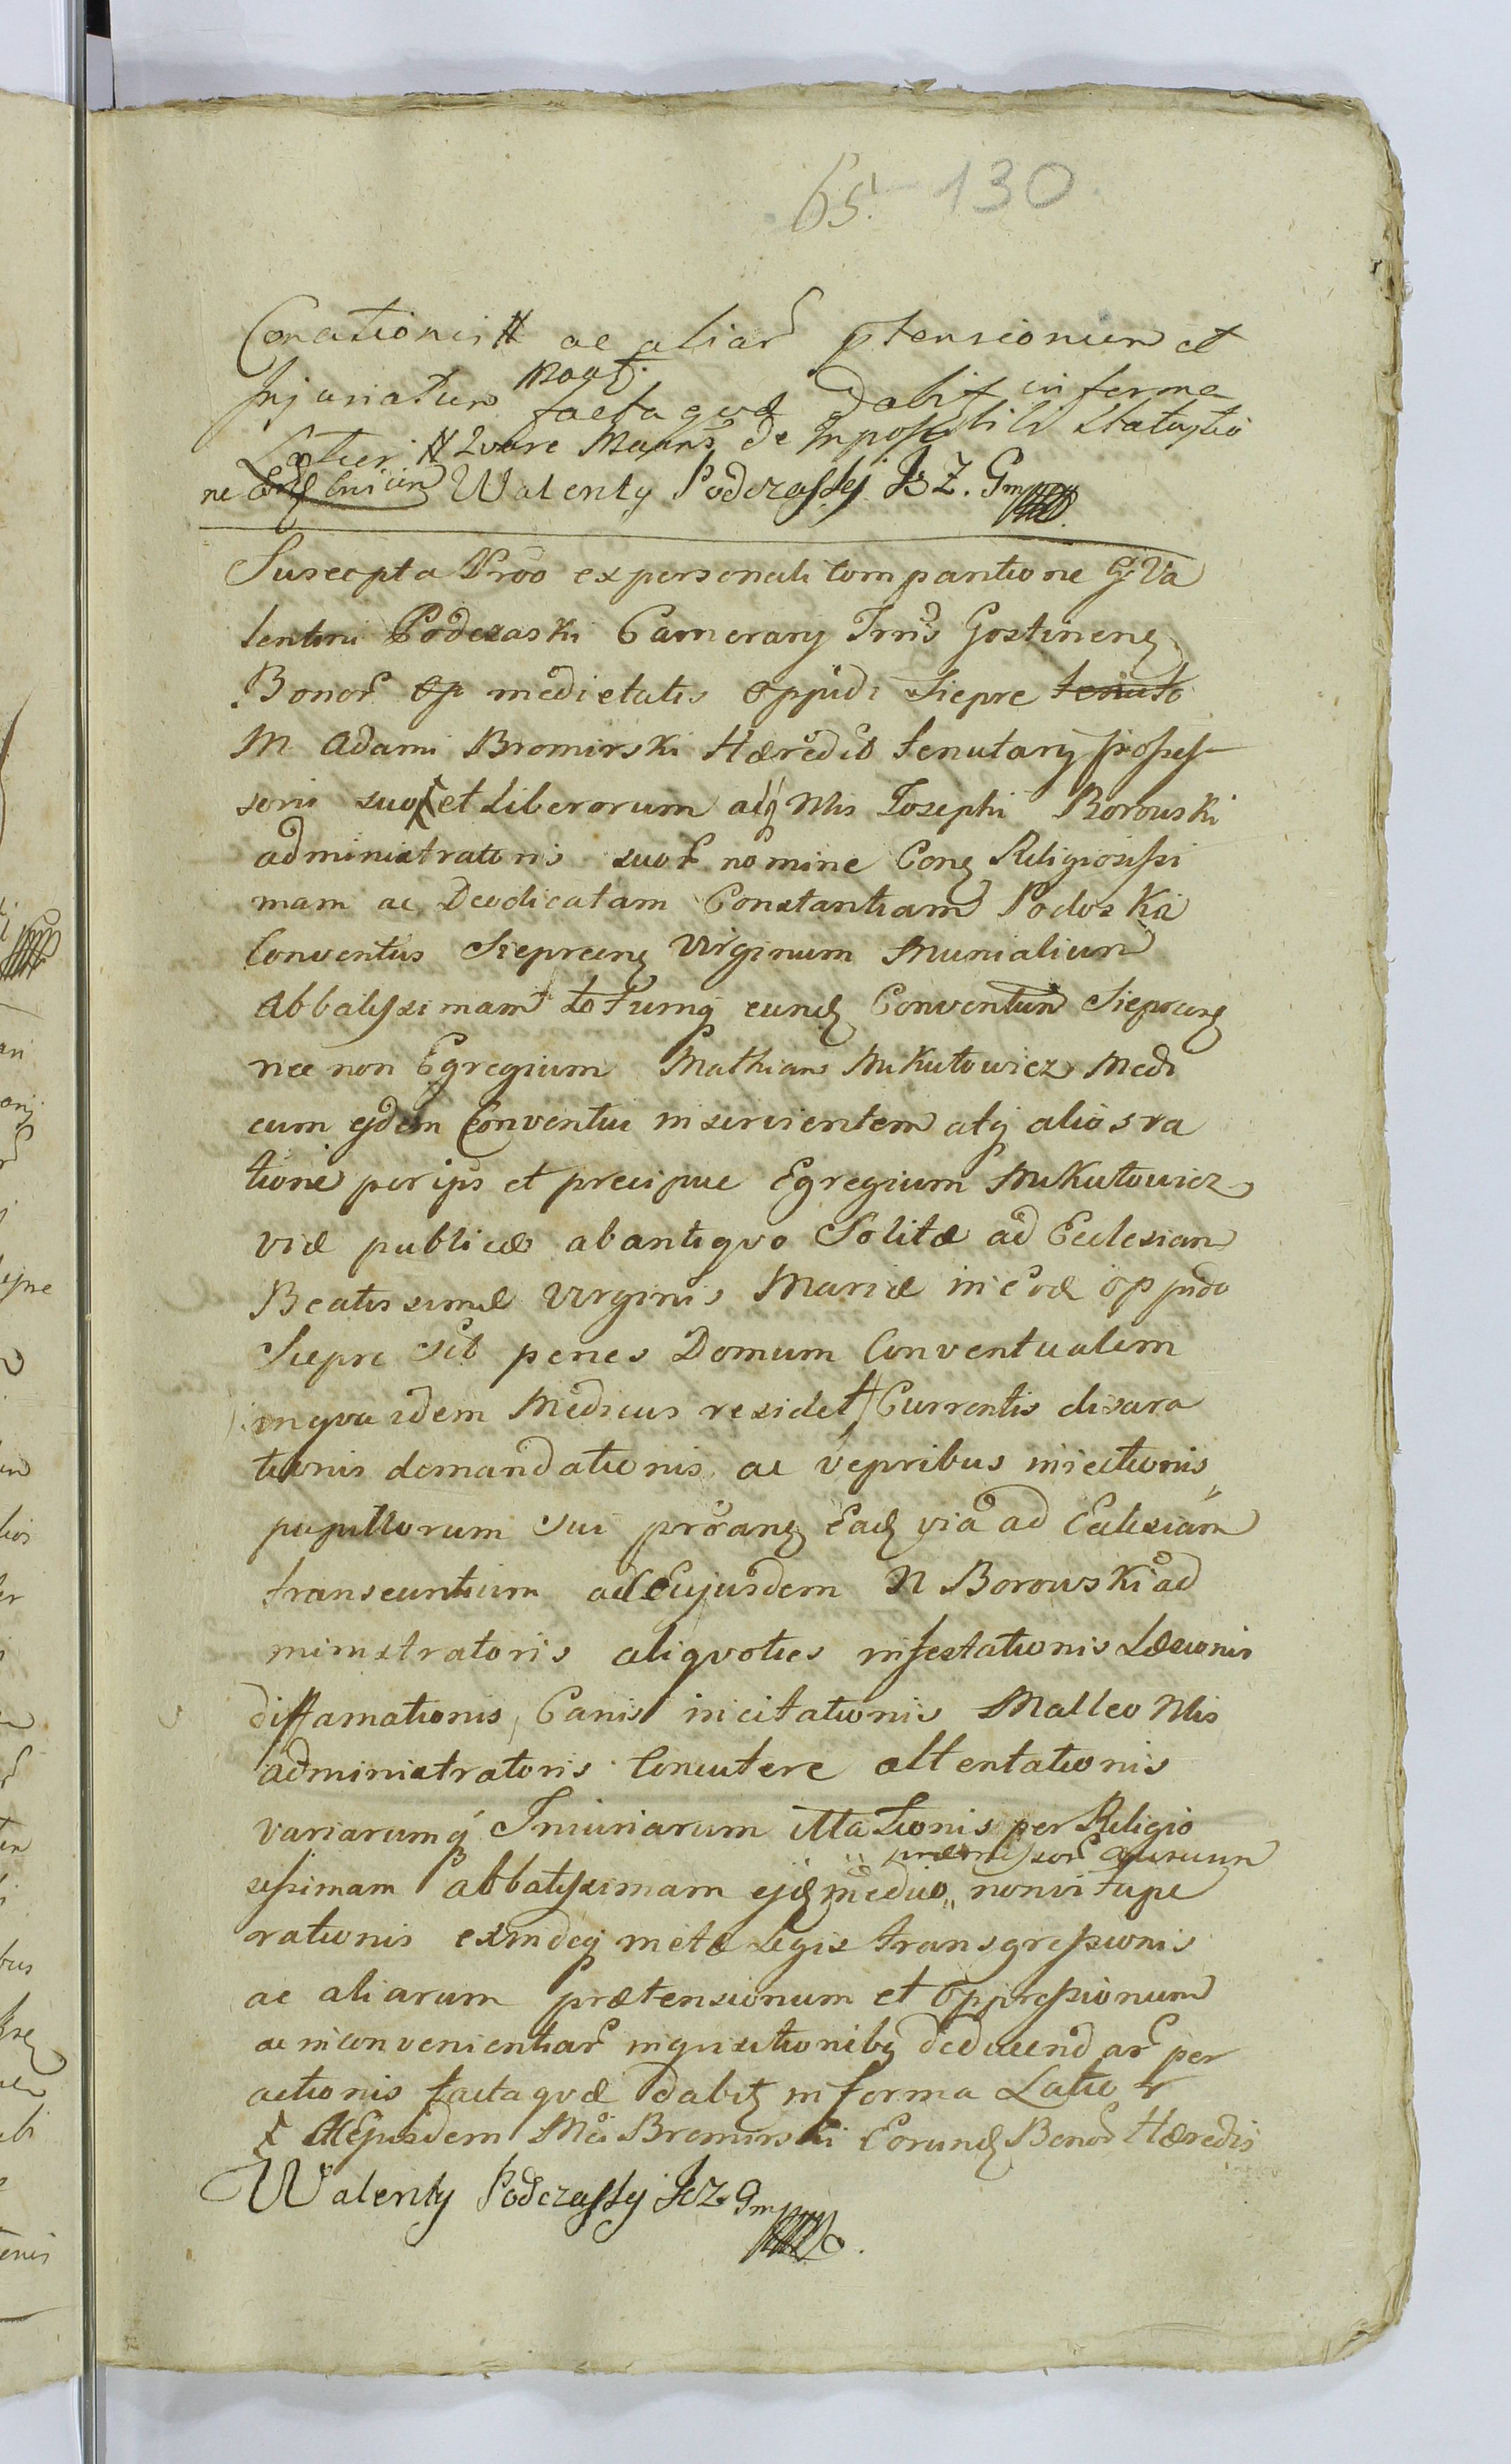 65. 130
Conationis # ac aliar ptensionum et
Injuriatum facta quæ dabit in forma
Latiori # Quare de Impossibili
ne Walenty Podczasky K Z. Gm
Suscepta Pròo ex personali comparitione G: Va
lentini Podczaski Camerarij Trrìs Gostinen
Bonor Op medietatis Oppidi Siepre tenuto
M Adami Bromirski Hæredis tenutarij possess
soris suo et Liberorum adq Nlis Josephi Borowski
administratoris suor nomine Con Religiosissi
mam ac Deodicatam Constantiam Podoska
Conventus Siepreen Virginum Munialium
Abbatissimam totumq eund Conventum Siepreen
nec non Egregium Mathiam Mikułowicz Medi
cum ejdem Conventui inservientem atq alios ra
tione per ips et precipue Egregium Mikułowicz
viæ publicæ ab antiquo Solitæ ad Eclesiam
Beatissimæ Virginis Mariæ in eod oppido
Siepre sit penes Domum Conventualem
in qua idem Medicus residet Currentis disara
tionis demandationis ac vepribus iniectionis
pupillorum sui proran Ead via ad Eclesiam
transeuntium ad Eujusdem N Borowski ad
ministratoris aliquoties infestationis Læsionis
diffamationis, Canis incitationis Malleo Nlis
administratoris Concutere attentationis
variarumq Iniuriarum illationis per Religio
sissimam abbatissimam ejd medico,, non vitupe
rationis exindeq metæ Legis transgressionis
ac aliarum prætensionum et Oppressionum
ac inconvenientiar inquisitionib deducendar per
actionis facta quæ dabit in forma Latior
Ejusdem Mci Bromirski Eorund Bonor Hæredis
Walenty Podczasky K Z Gm